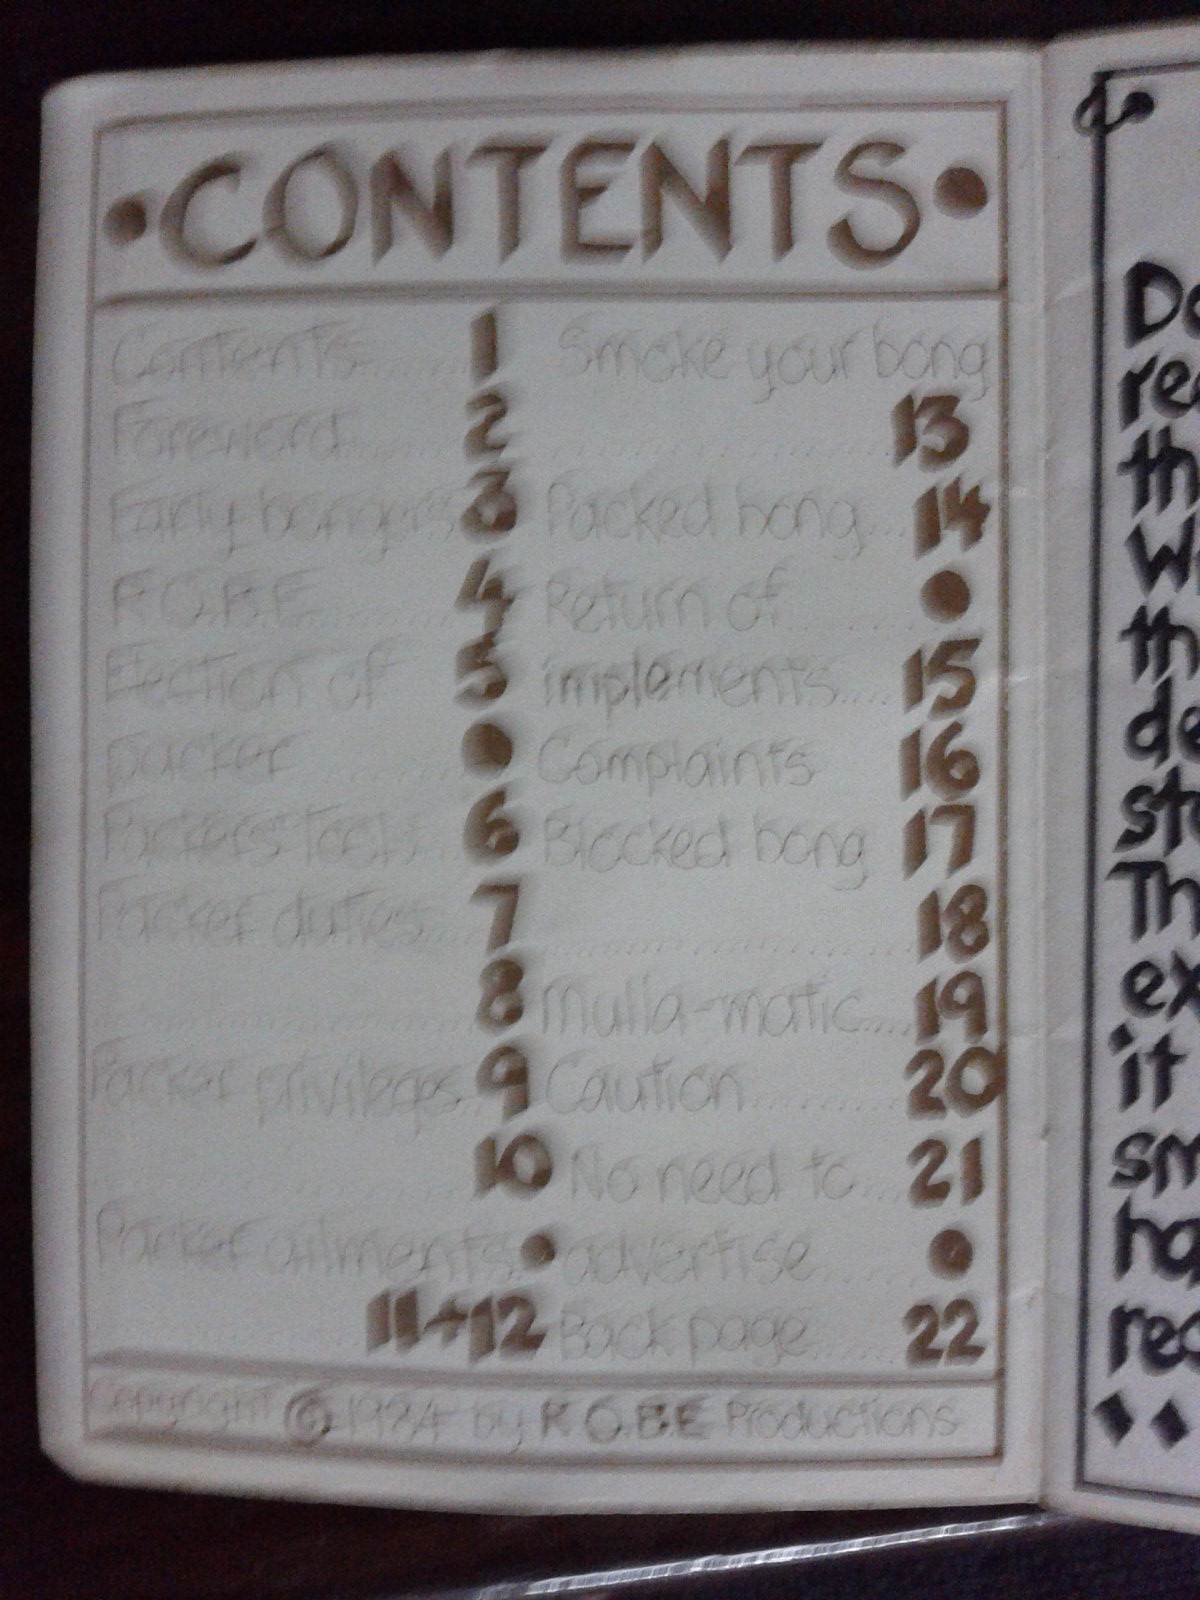 •CONTENTS•
Contents........1
Foreword........2
Early bongers 3
R.O.B.E.........4
Election of 5
packer ........•
Packers Tool....6
Packer duties...7
................8
Packer privileges..9
................10
Packer ailments.•
................11+12
Smoke your bong
................13
Packed bong...14
Return of.......•
implements....15
Complaints 16
Blocked bong 17
................18
Mulla-matic....19
Caution.........20
No need to...21
advertise.......•
Back page.......22
Copyright © 1984 by R.O.B.E Productions
th
it
Th